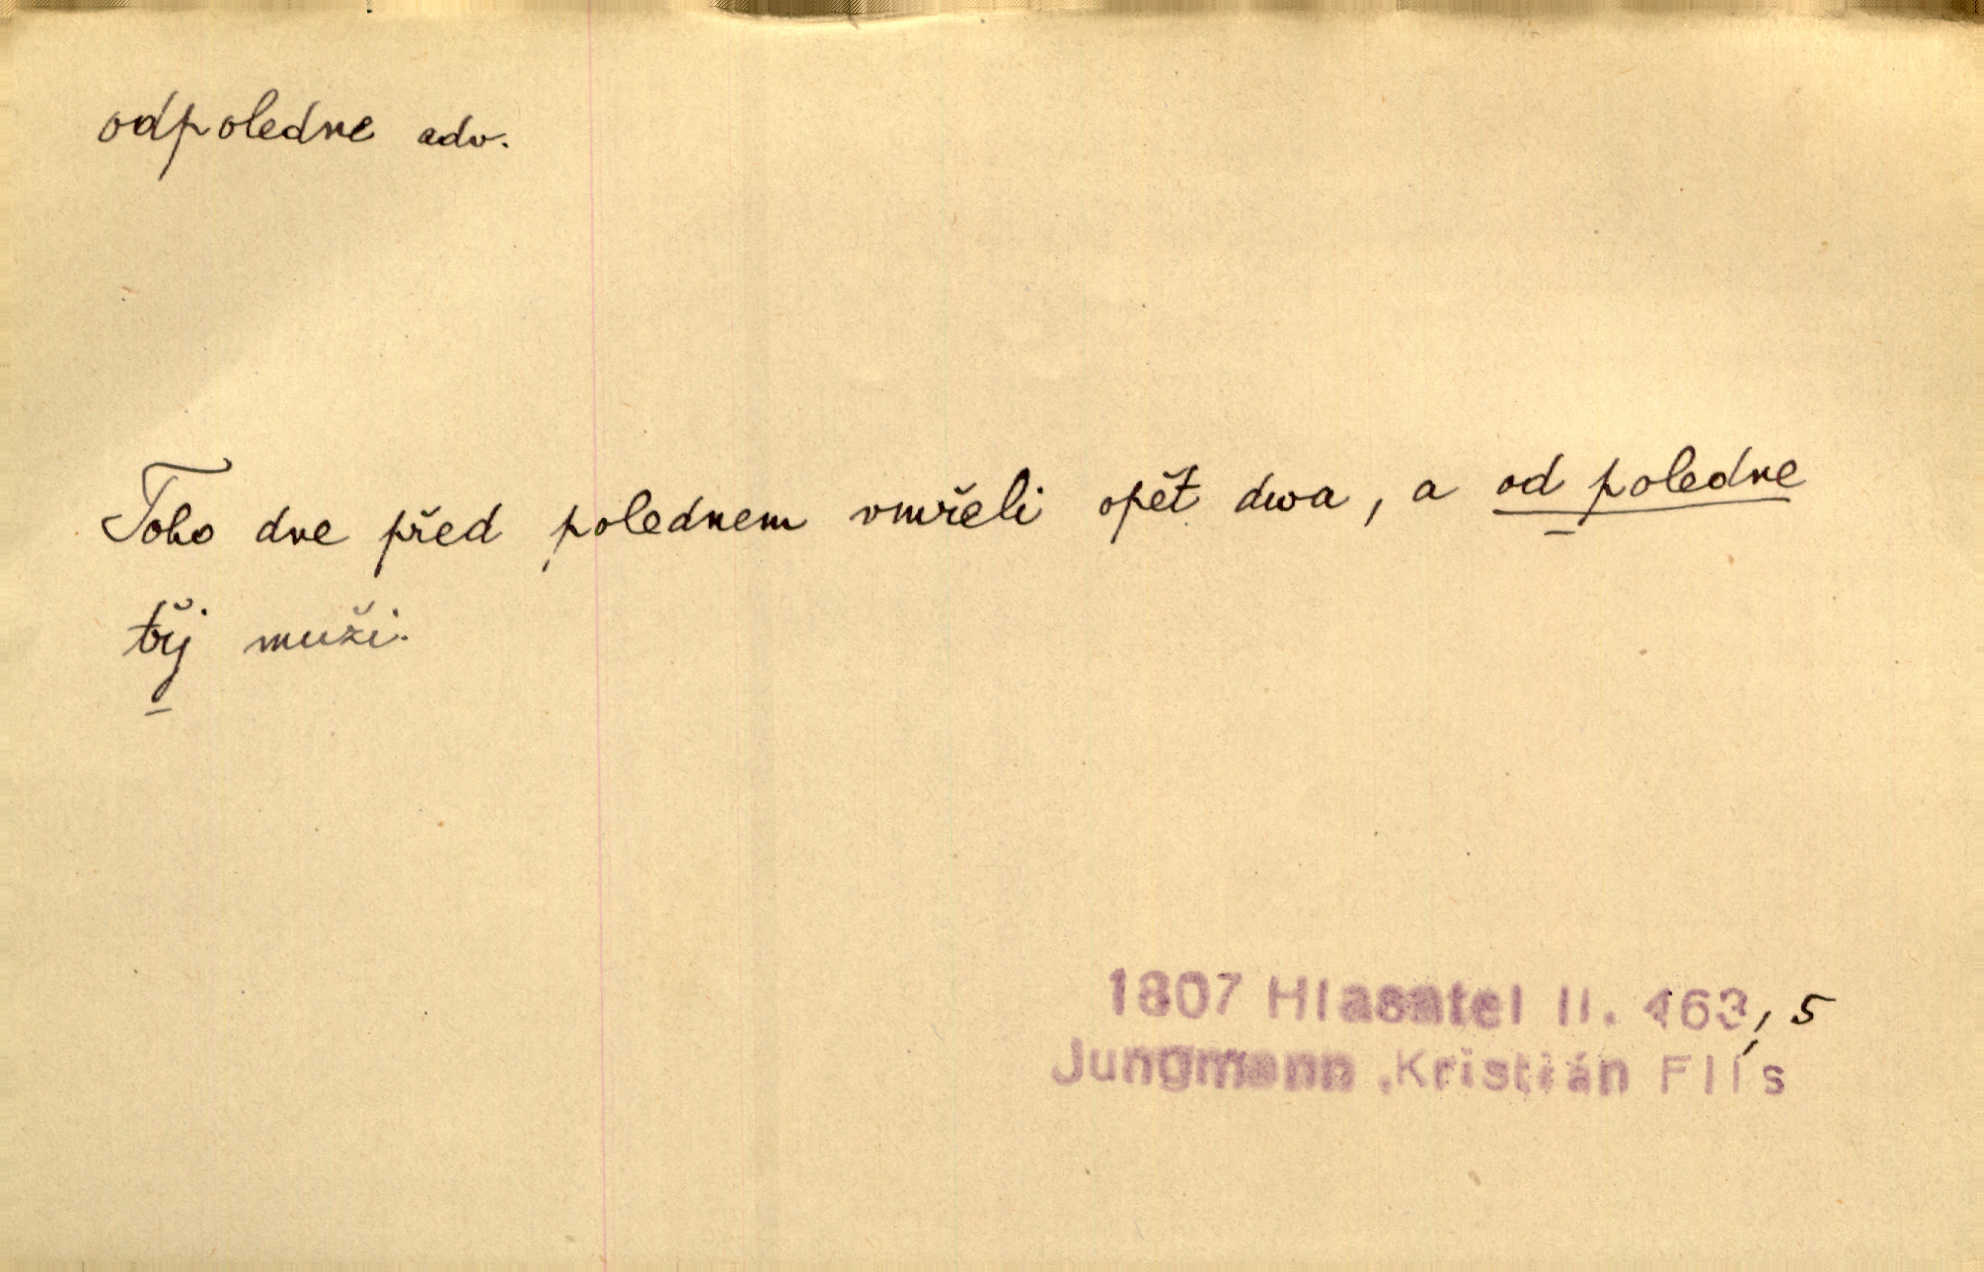 odpoledne adv.
Toho dne před polednem vmřeli opět dwa, a od poledne
třj muži.
1807 Hlasatel II. 463, 5
Jungmann, Kristián Flís